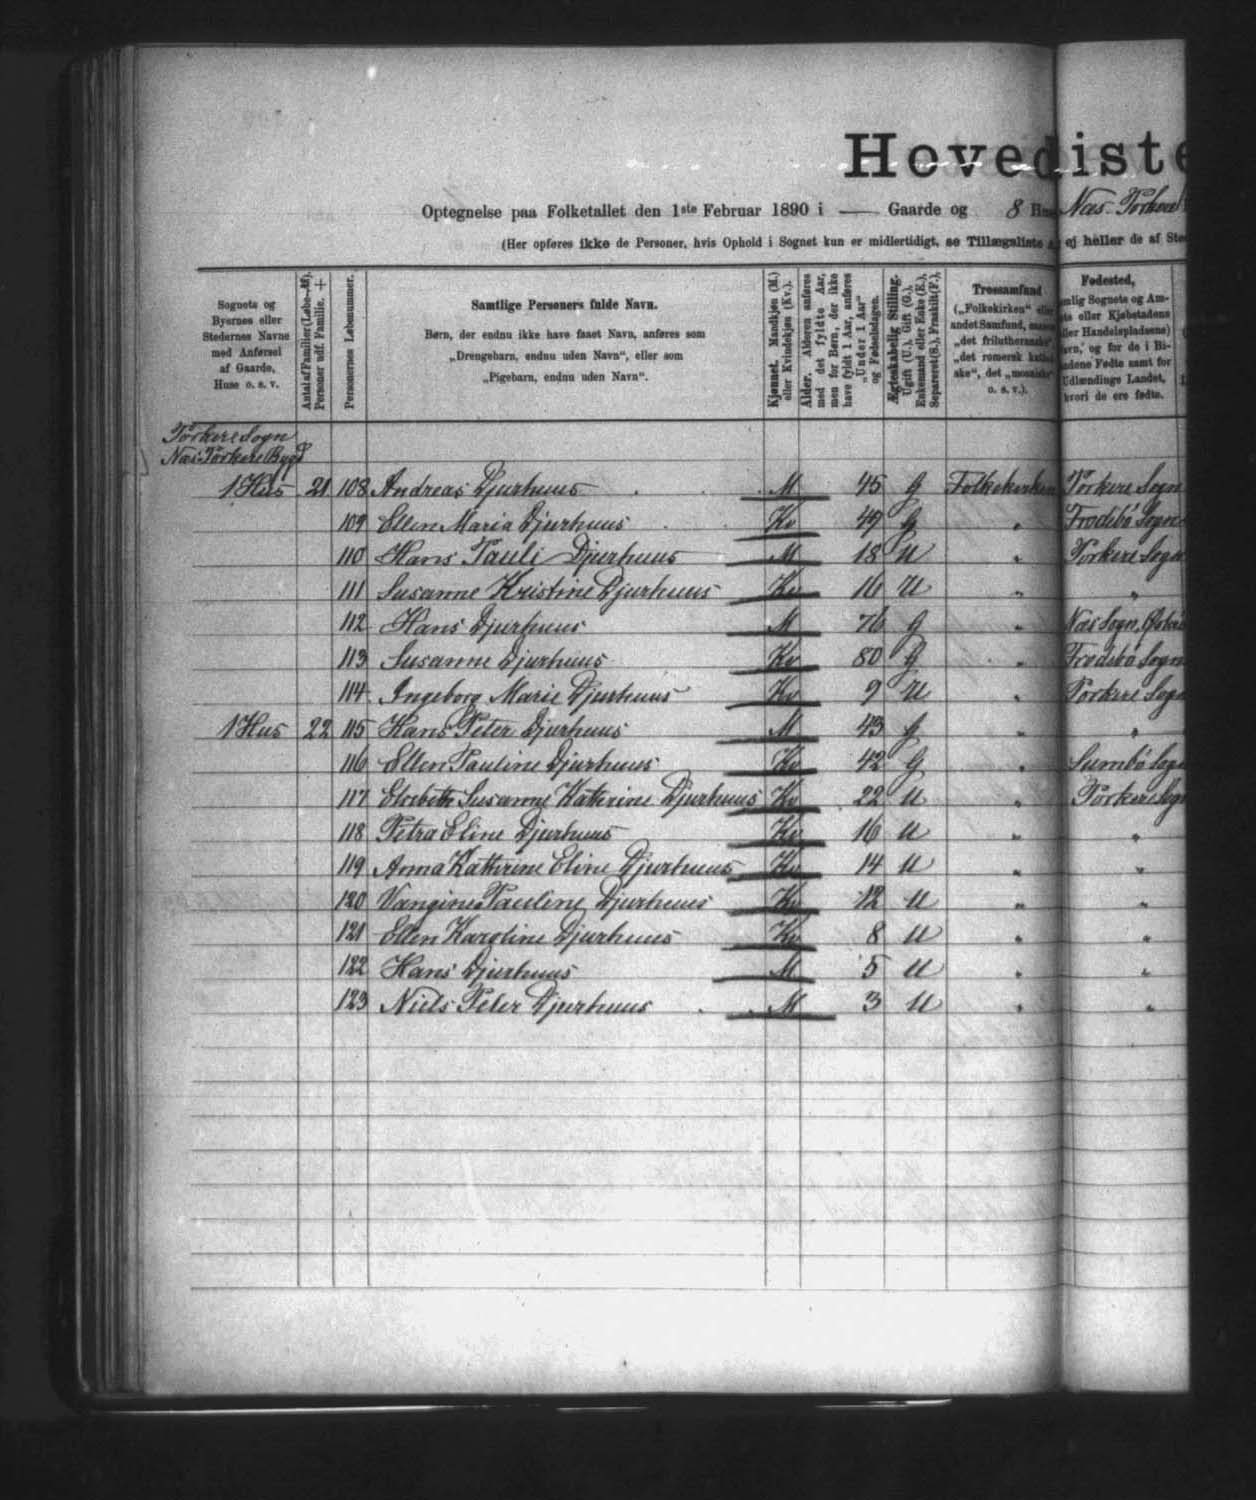 Hovediste
Optegnelse paa Folketallet den 1ste Februar 1890 i — Gaarde og 8 Hu Næs. Pörkere
(Her opføres ikke de Personer, hvis Ophold i Sognet kun er midlertidigt, se Tillægsliste ej heller de af
Sognets og Byernes eller Stedernes Navne med Anførsel af Gaarde, Huse o. s. v.
Antal af Familier (Løbe-№). Personer udf. Familie. +
Personernes Løbenummer.
Samtlige Personers fulde Navn.
Børn, der endnu ikke have faaet Navn, anføres som
„Drengebarn, endnu uden Navn“, eller som
„Pigebarn, endnu uden Navn“.
Kjønnet. Mandkjøn (M.) eller Kvindekjøn (Kv.).
Alder. Alderen anføres med det fyldte Aar, men for Børn, der ikke have fyldt 1 Aar, anføres „Under 1 Aar“ og Fødselsdagen.
Ægteskabelig Stilling. Ugift (U.), Gift (G.), Enkemand eller Enke (E.), Separeret (S.), Fraskilt (F.).
Trossamfund
(„Folkekirken“
andet Samfund,
„det frilutheranske“
„det romersk
ske“, det „mosaiske
o. s. v.).
Fødested,
nlig Sognets og Am-
ts eller Kjøbstadens
ller Handelspladsens)
avn, og for de i Bi-
andene Fødte samt for
Udlændinge Landet,
hvori de ere fødte.
Pörkere Sogn
Næs-Pörkere Bygd
1 Hus 21 108 Andreas Djurhuus M 45 G Folkekirken Pörkere Sogn
109 Ellen Maria Djurhuus Kv 47 G " Frodebö Sogn
110 Hans Pauli Djurhuus M 18 U " Pörkere Sogn
111 Susanne Kristine Djurhuus Kv 16 U " "
112 Hans Djurhuus M 76 G " Næs Sogn,
113 Susanne Djurhuus Kv 80 G " Frodebö Sogn
114 Ingeborg Marie Djurhuus Kv 9 U " Pörkere Sogn
1 Hus 22 115 Hans Peter Djurhuus M 43 G " "
116 Ellen Pauline Djurhuus Kv 42 G " Sumbö Sogn
117 Elsebeth Susanne Kathrine Djurhuus Kv 22 U " Pörkere Sogn
118 Petra Eline Djurhuus Kv 16 U " "
119 Anna Kathrine Eline Djurhuus Kv 14 U " "
120 Vangine Pauline Djurhuus Kv 12 U " "
121 Ellen Karoline Djurhuus Kv 8 U " "
122 Hans Djurhuus M 5 U " "
123 Niels Peter Djurhuus M 3 U " "